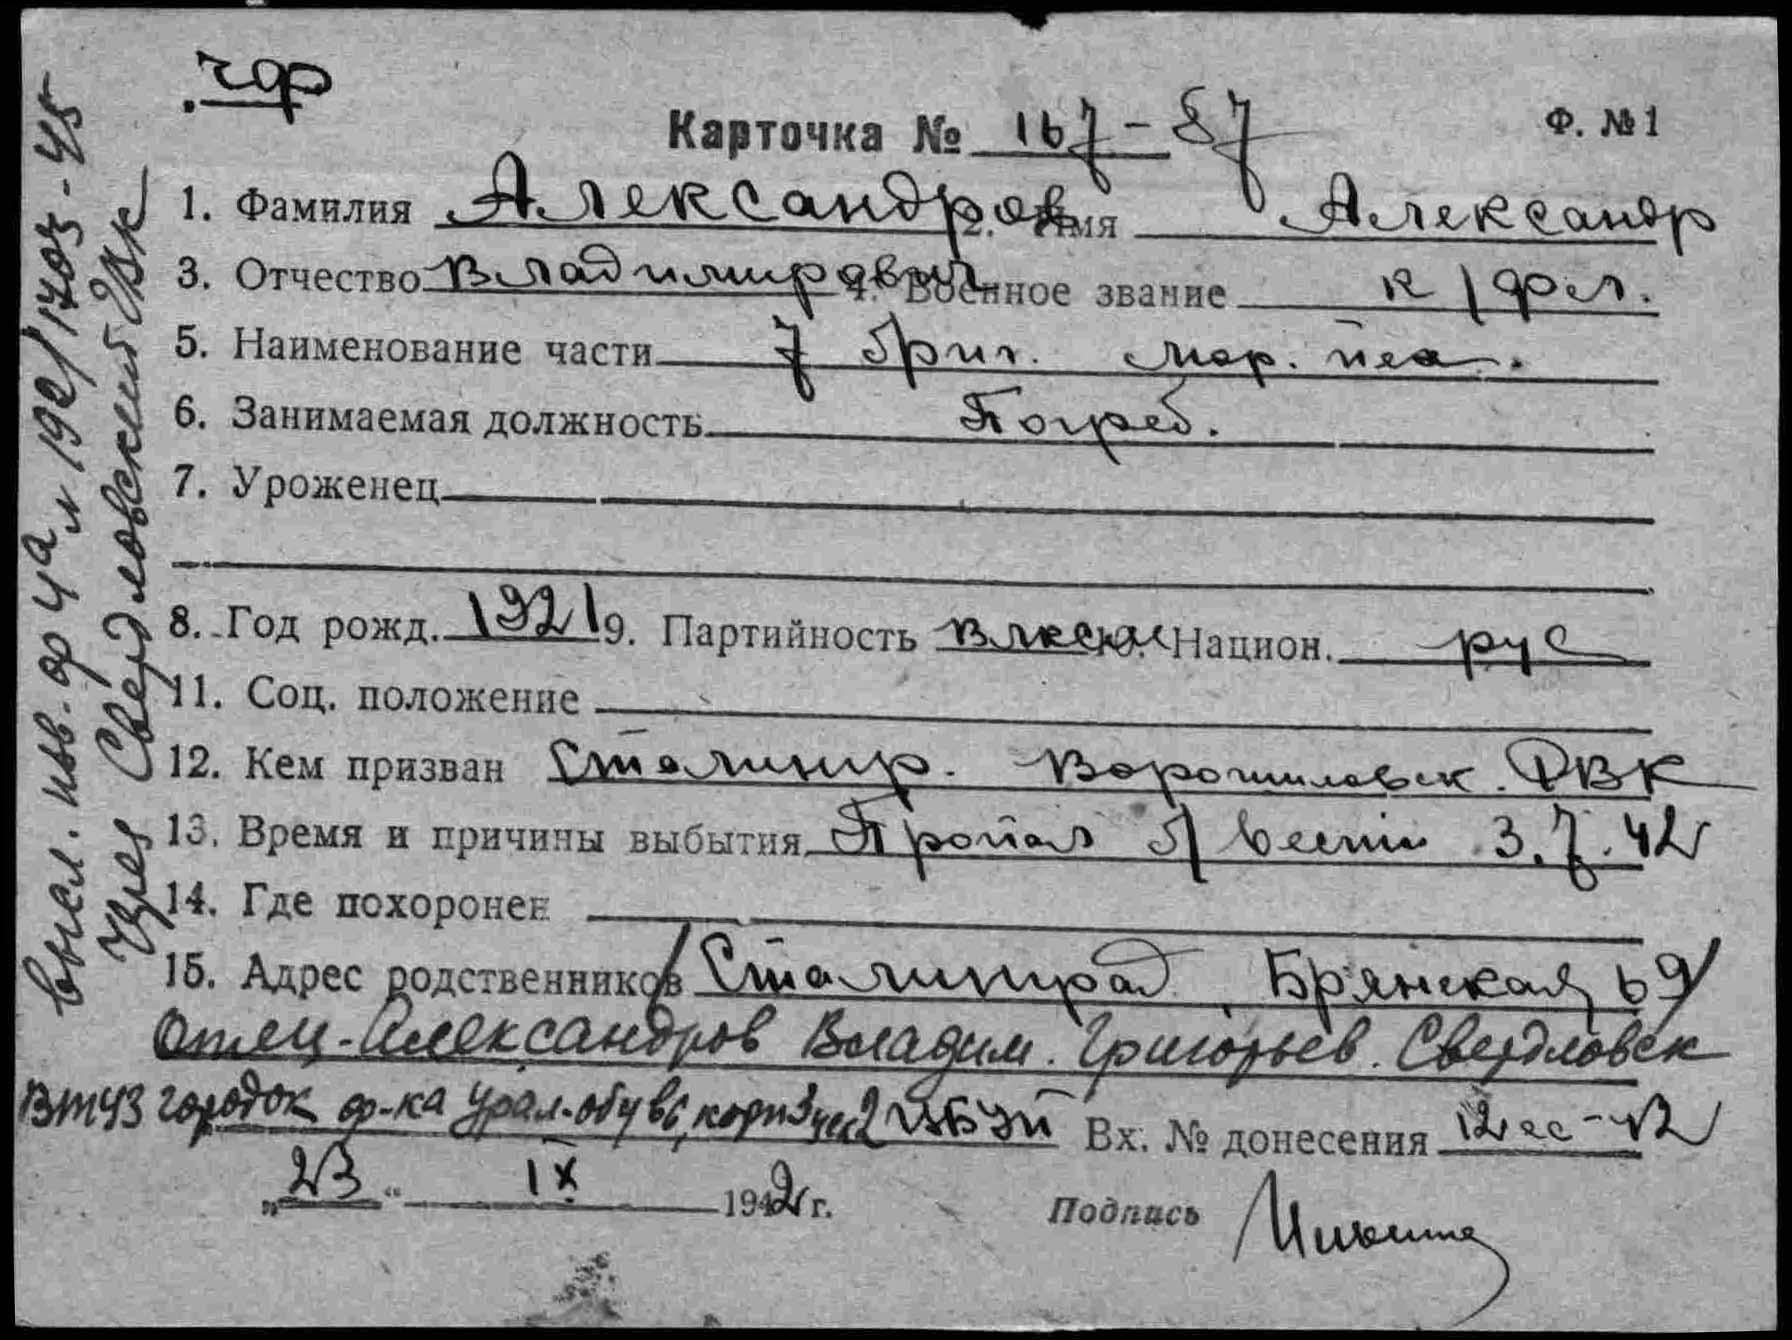 чф
Карточка № 167-87
Ф. №1
1. Фамилия Александров 2. Имя Александр
3. Отчество Владимирович 4. Военное звание к/фл.
5. Наименование части 7 бриг. мор. пех.
6. Занимаемая должность Погреб.
7. Уроженец
8. Год рожд. 1921 9. Партийность влксм Национ. рус
11. Соц. положение
12. Кем призван Сталингр. Ворошиловск. РВК
13. Время и причины выбытия Пропал б/вести 3.7.42
14. Где похоронен
15. Адрес родственников Сталинград, Брянская 69
Отец-Александров Владим. Григорьев. Свердловск
Втуз городок ф-ка Урал-обувь, корп 3 Вх. № донесения
"23" IX 1942 г.
Подпись
высл. изв. ф 4а 192/1703-45
Через Свердловский ГВК